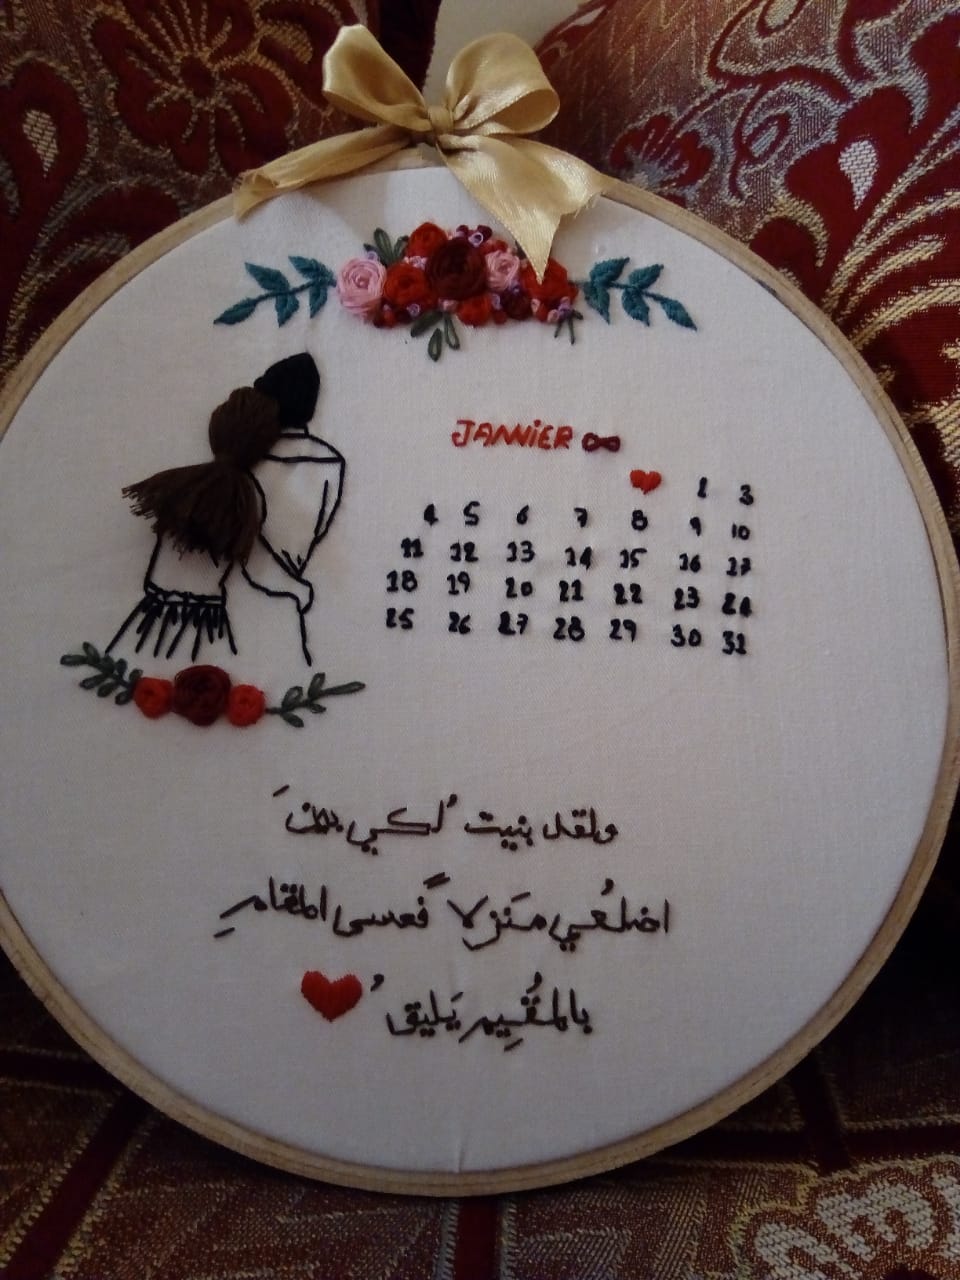 JANVIER
2 3
4 5 6 7 8 9 10
11 12 13 14 15 16 17
18 19 20 21 22 23 24
25 26 27 28 29 30 31
ولقد بنيتُ لكي بمنَ
اضلُعي مَنزلاً فعسى المقامِ
بالمُقِيم يَليقُ